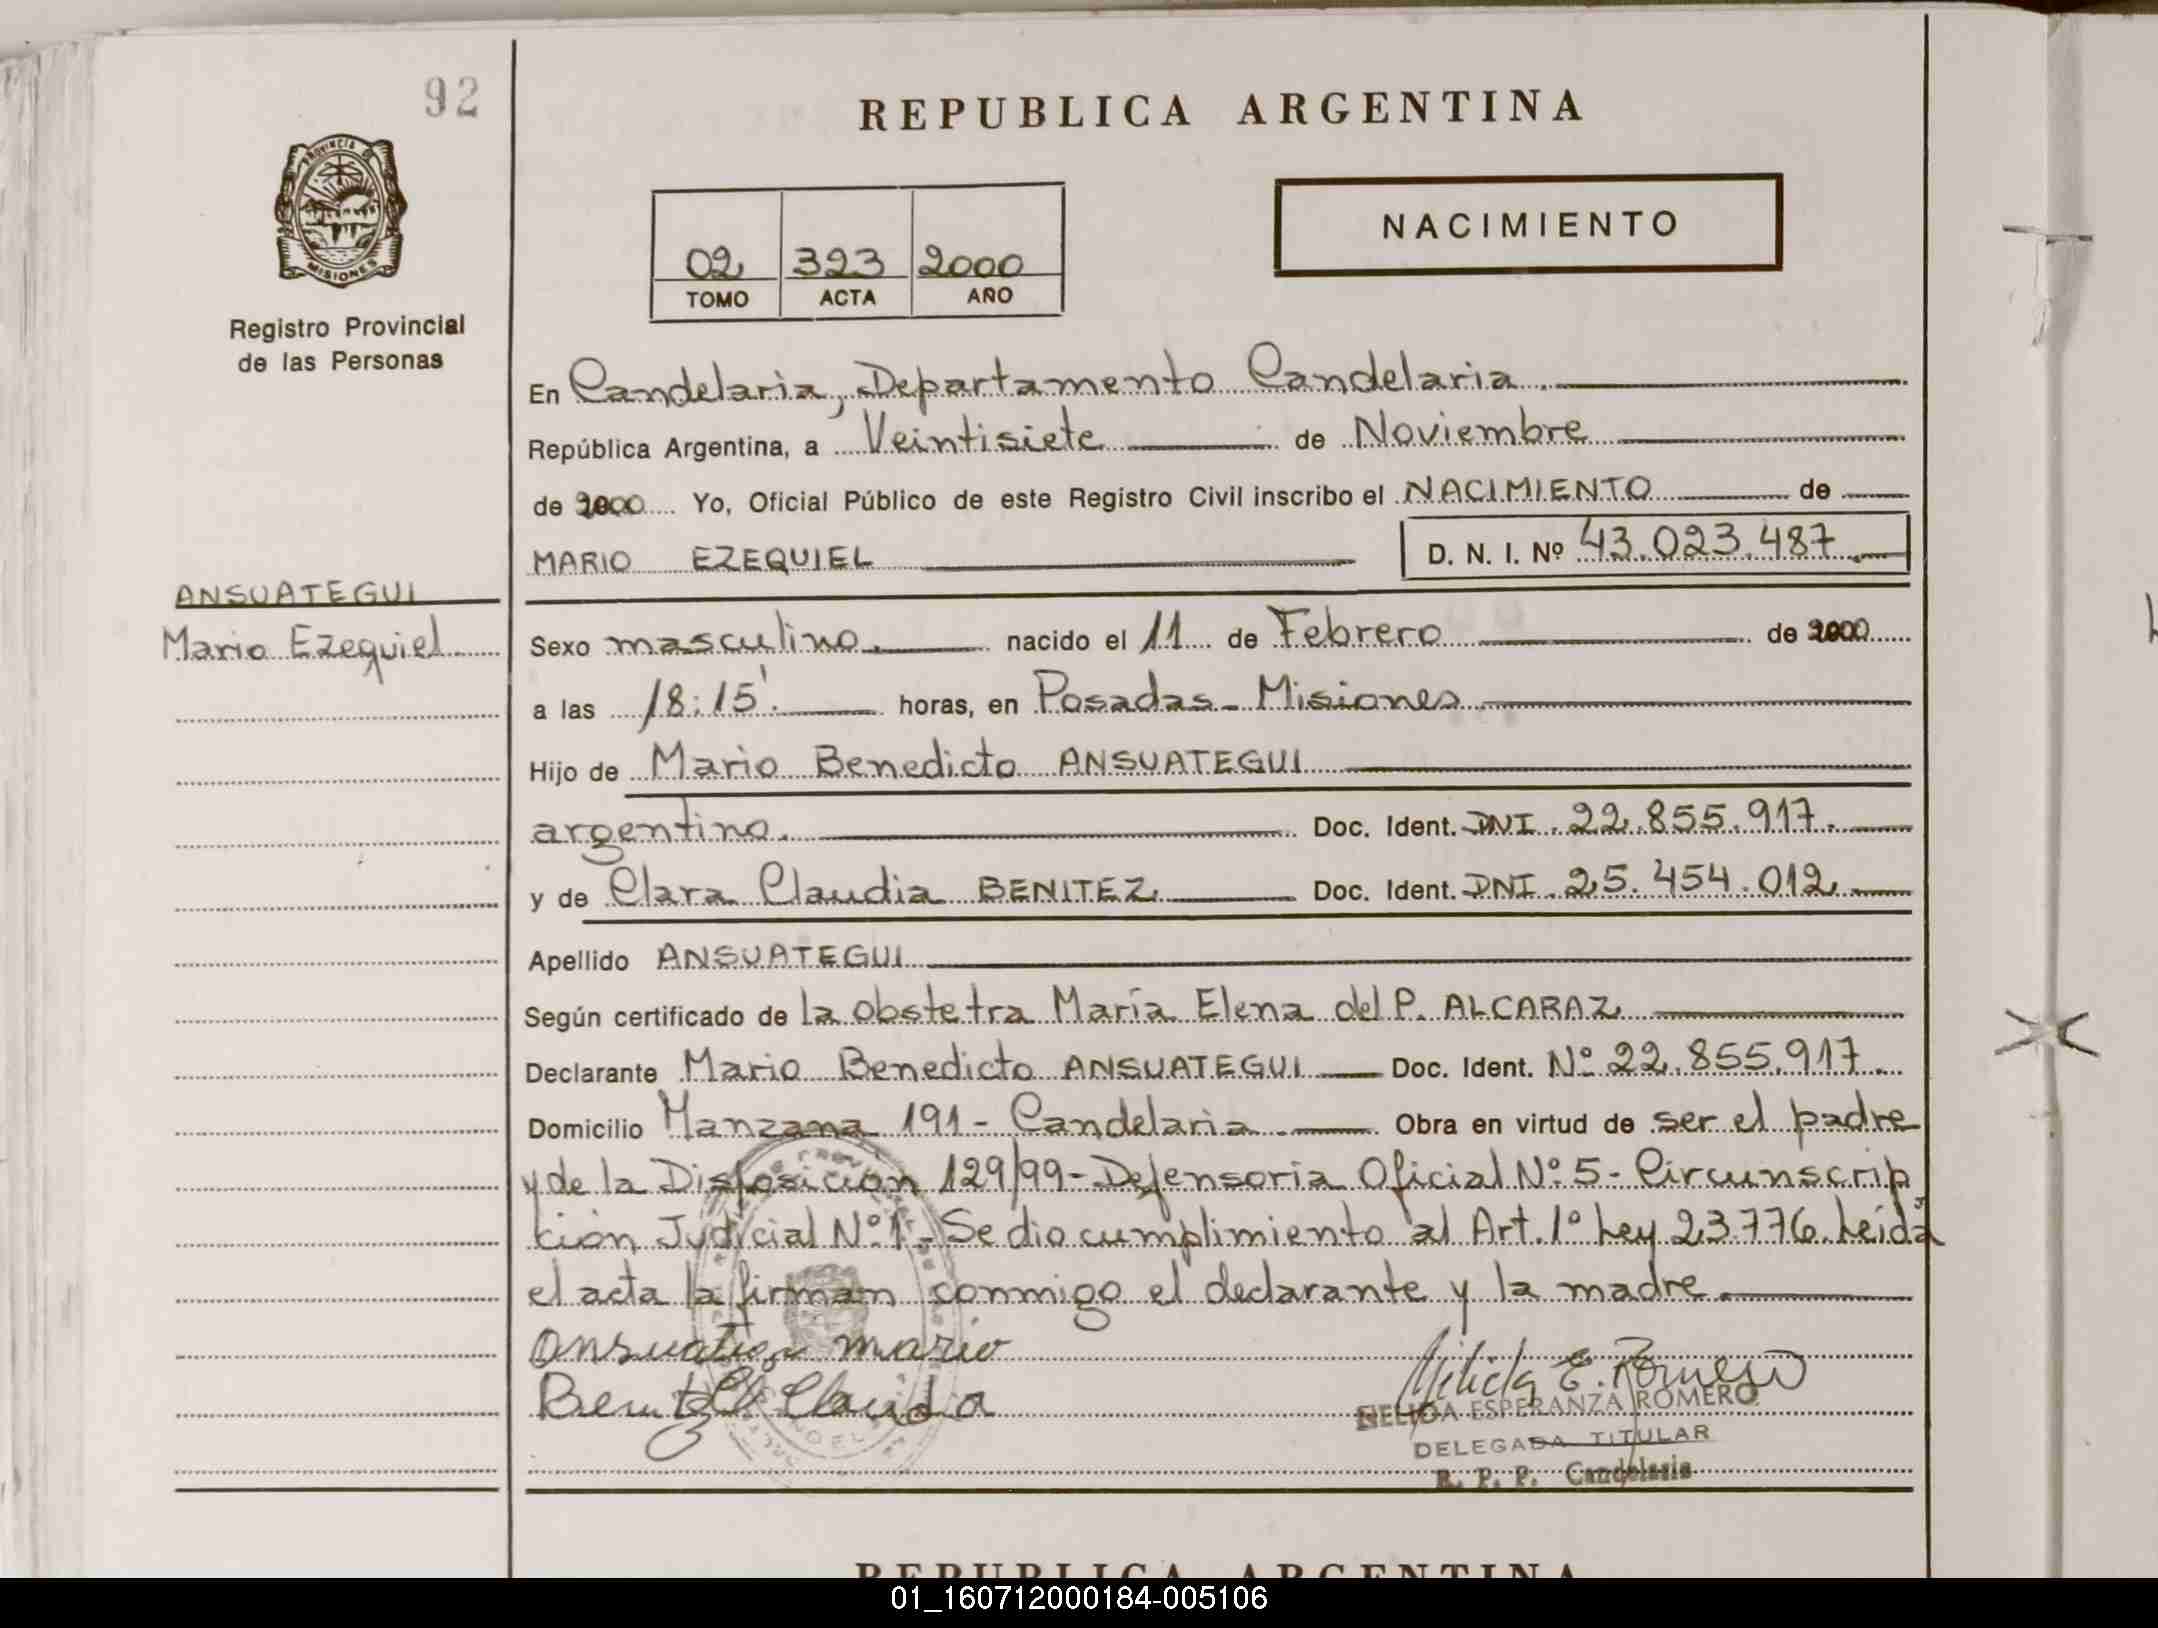 92
REPUBLICA ARGENTINA
PROVINCIA DE
MISIONES
Registro Provincial
de las Personas
02 323 2000
TOMO ACTA AÑO
NACIMIENTO
En Candelaria, Departamento Candelaria.
República Argentina, a Veintisiete de Noviembre
de 2000 Yo, Oficial Público de este Registro Civil inscribo el NACIMIENTO de
MARIO EZEQUIEL D. N. I. Nº 43.023.487.
ANSUATEGUI
Mario Ezequiel
Sexo masculino. nacido el 11 de Febrero de 2000
a las 18:15'. horas, en Posadas - Misiones
Hijo de Mario Benedicto ANSUATEGUI
argentino. Doc. Ident. DNI. 22.855.917.
y de Clara Claudia BENITEZ Doc. Ident. DNI. 25.454.012.
Apellido ANSUATEGUI
Según certificado de la obstetra María Elena del P. ALCARAZ
Declarante Mario Benedicto ANSUATEGUI Doc. Ident. Nº 22.855.917.
Domicilio Manzana 191 - Candelaria. Obra en virtud de ser el padre
y de la Disposición 129/99 - Defensoria Oficial Nº 5 - Circunscrip
ción Judicial Nº 1.- Se dio cumplimiento al Art. 1º Ley 23.776. Leída
el acta la firman conmigo el declarante y la madre.
mario
Claudia
NELIDA ESPERANZA ROMERO
DELEGADA TITULAR
R. P. P. Candelaria
REPUBLICA ARGENTINA
01_160712000184-005106